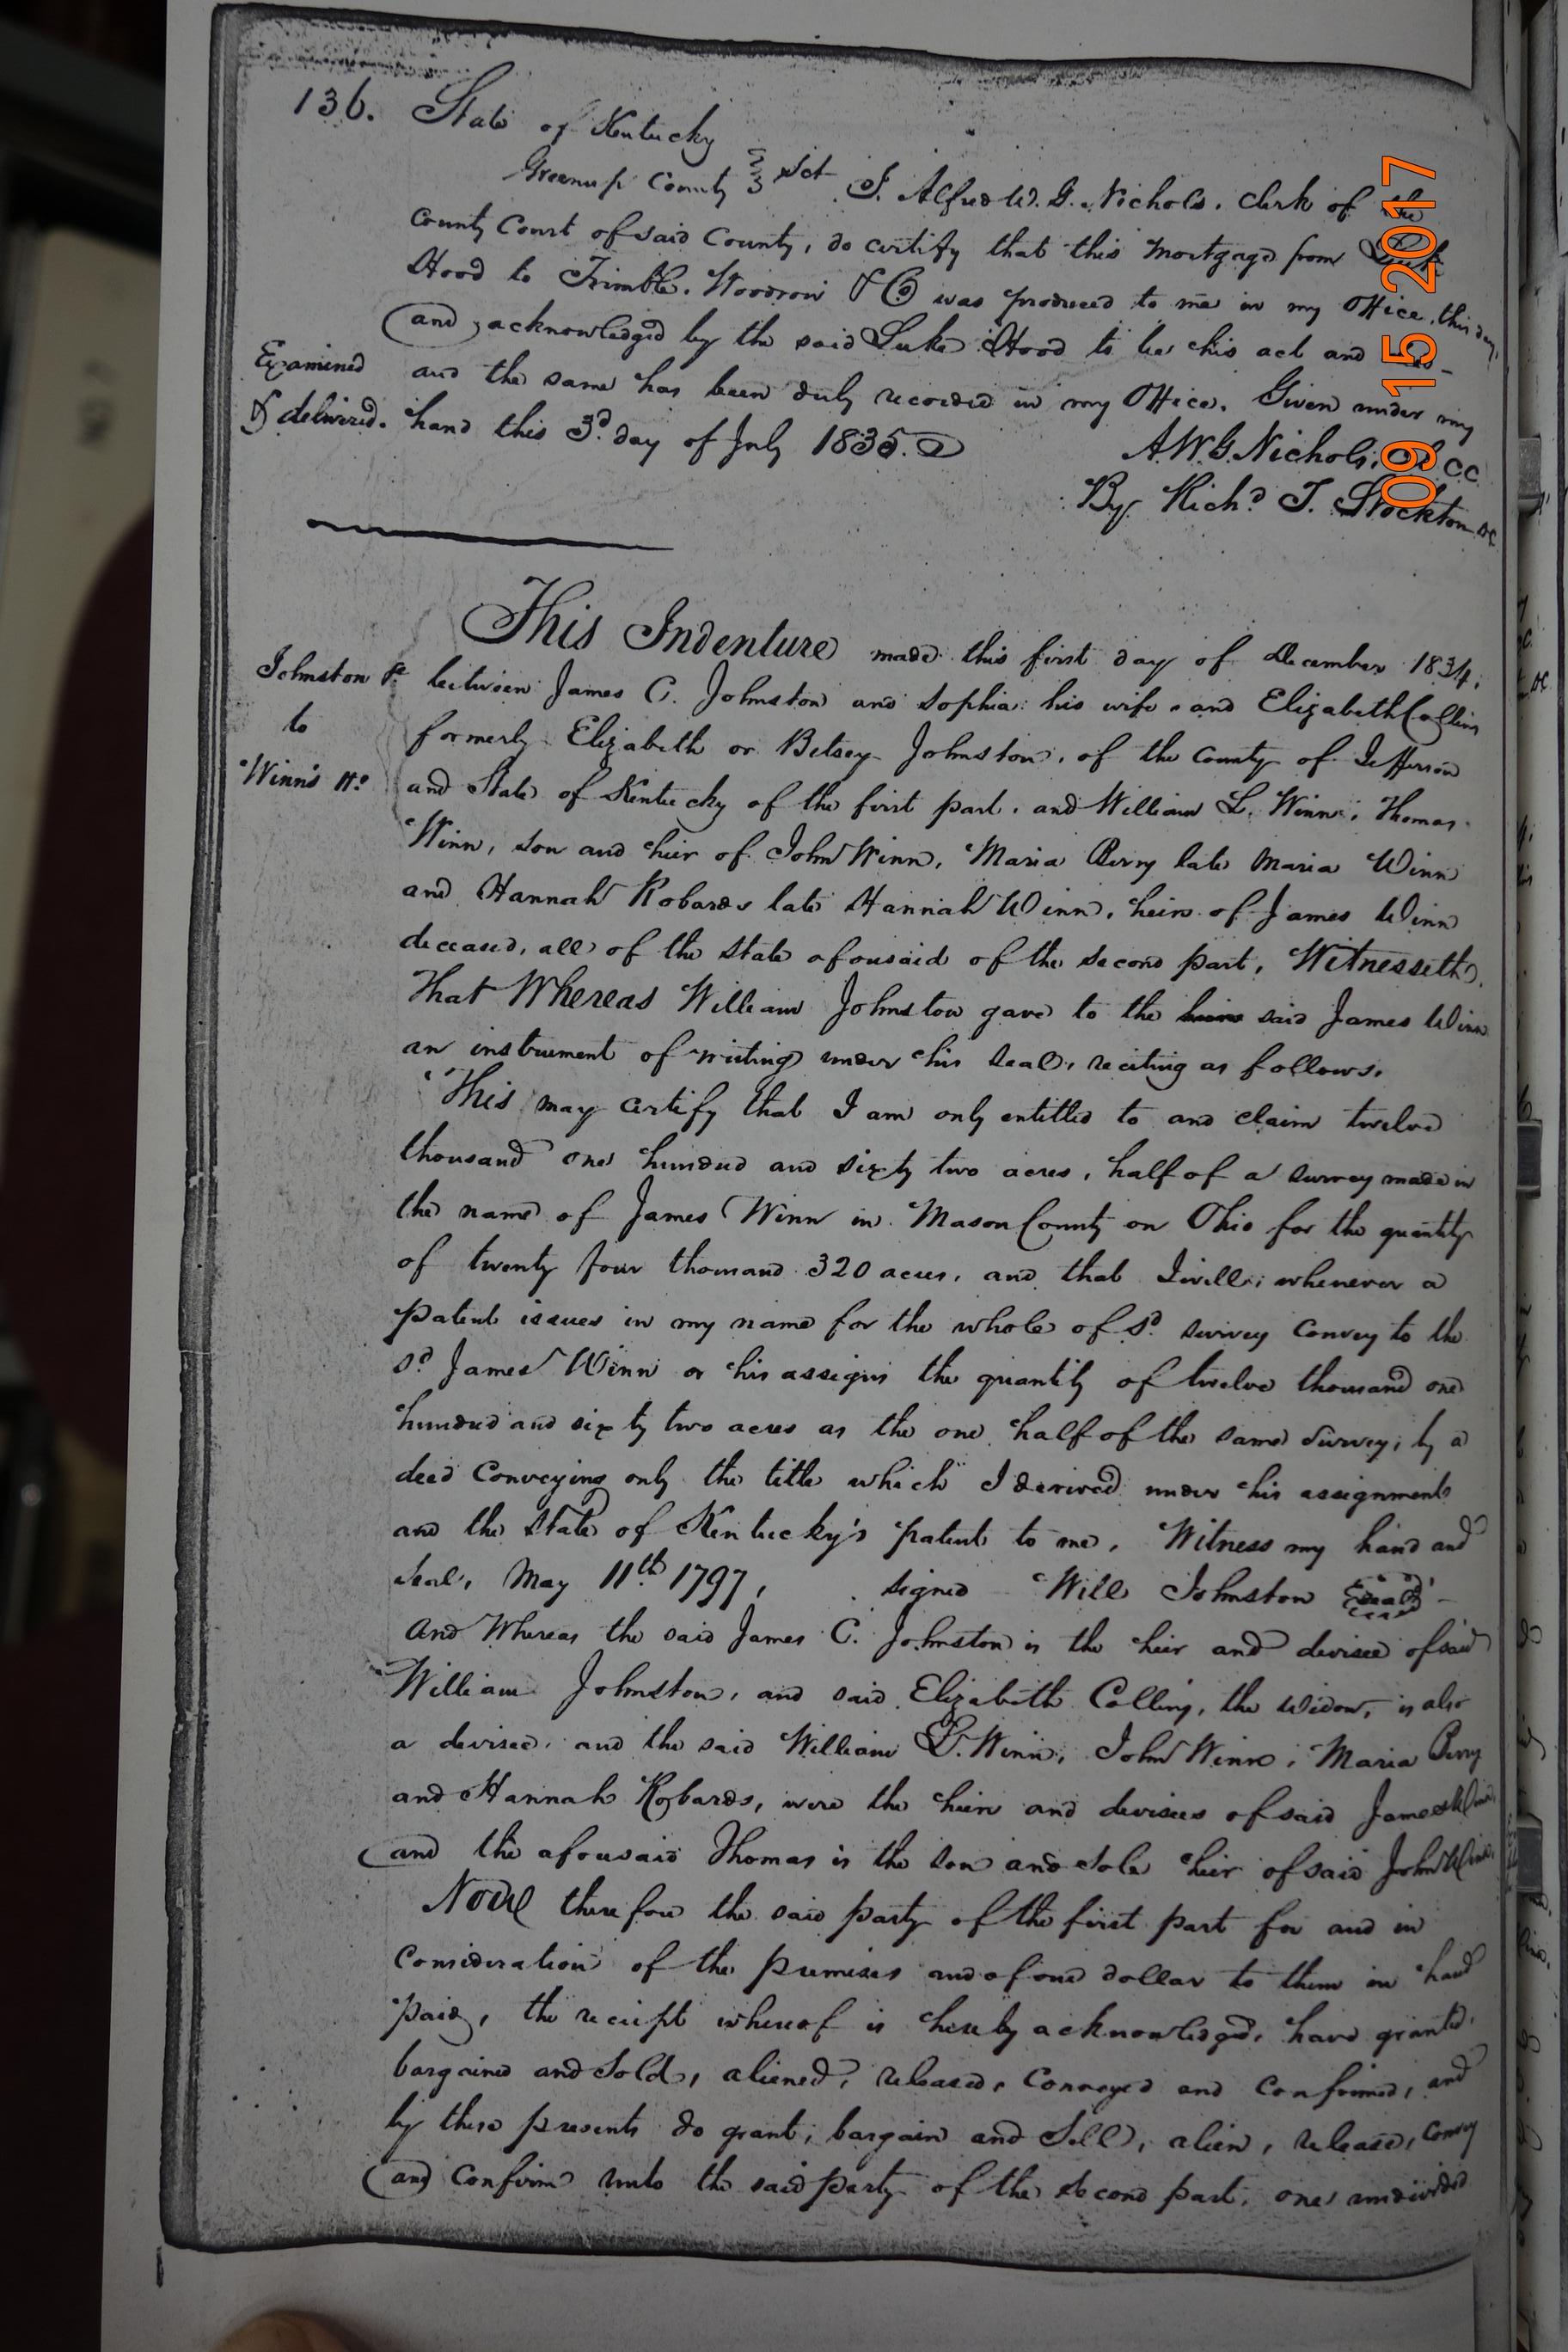 136. State of Kentucky
Greenup County } Sct. I. Alfred W. G. Nichols. Clerk of the
County Court of said County, do certify that this Mortgage from Luke
Hood to Trimble. Woodrow & Co was produced to me in my Office, this day,
and acknowledged by the said Luke Hood to be his act and
Examined and the same has been duly recorded in my Office. Given under my
& delivered. hand this 3d. day of July 1835.
A. W. G. Nichols. C.C.
By. Richd. T. Stockton DC
09 15 2017
This Indenture made this first day of December 1834.
Johnston &c between James C. Johnston and Sophia his wife and Elizabeth Collins
to formerly Elizabeth or Betsey Johnston, of the County of Jefferson
Winn's Hs and State of Kentucky of the first part. and William L. Winn, Thomas
Winn, son and heir of John Winn, Maria Perry late Maria Winn
and Hannah Robards late Hannah Winn, heirs of James Winn
deceased, all of the State aforesaid of the second part, Witnesseth,
That Whereas William Johnston gave to the heirs said James Winn
an instrument of writing under his seal, reciting as follows.
This may certify that I am only entitled to and claim twelve
thousand one hundred and sixty two acres, half of a survey made in
the name of James Winn in Mason County on Ohio for the quantity
of twenty four thousand 320 acres, and that I will, whenever a
patent issues in my name for the whole of sd. survey convey to the
sd. James Winn or his assigns the quantity of twelve thousand one
hundred and sixty two acres as the one half of the same survey, by a
deed Conveying only the title which I derived under his assignment
and the State of Kentucky's patent to me. Witness my hand and
Seal, May 11th 1797, signed Will Johnston Seal
And Whereas the said James C. Johnston is the heir and devisee of said
William Johnston, and said Elizabeth Collins, the widow, is also
a devisee, and the said William L. Winn, John Winn, Maria Perry
and Hannah Robards, were the heirs and devisees of said James Winn,
and the aforesaid Thomas is the son and sole heir of said John Winn.
Now therefore the said party of the first part for and in
Consideration of the premises and of one dollar to them in hand
paid, the receipt whereof is hereby acknowledged, have granted,
bargained and sold, aliened, released, Conveyed and Confirmed, and
by these presents do grant, bargain and Sell, alien, release, Convey
and Confirm unto the said party of the second part, one undivided